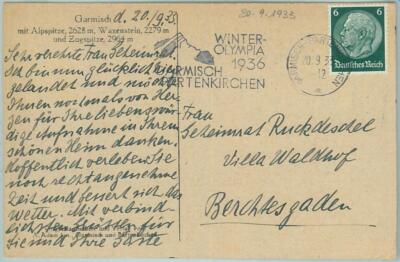 Garmisch d. 20./9.33.
mit Alpspitze, 2628 m, Waxenstein, 2279 m
und Zugspitze, 2964 m
Sehr verehrte Frau Geheimrat.
Ich bin nun glücklich hier
gelandet und möchte
Ihnen nochmals von Her-
zen für Ihre liebenswür-
dige Aufnahme in Ihrem
schönen Heim danken.
Hoffentlich verleben Sie
noch recht angenehme
Zeit und bessert sich das
Wetter. Mit verbind-
lichsten Grüßen für
Sie und Ihre Gäste
20.9.1933
WINTER-
OLYMPIA
1936
GARMISCH
PARTENKIRCHEN
GARMISCH-PARTENKIRCHEN
20.9.33
12
6 6
Deutsches Reich
Frau
Geheimrat Ruckdeschel
Villa Waldhof
Berchtesgaden